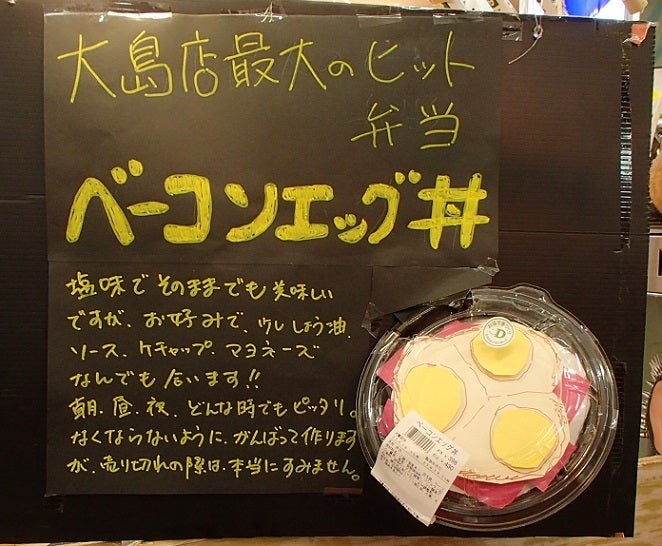 大島店最大のヒット
弁当
ベーコンエッグ丼
塩味でそのままでも美味しい
ですが、お好みで、ウレしょう油、
ソース、ケチャップ、マヨネーズ
なんでも合います!!
朝、昼、夜、どんな時でもピッタリ。
なくならないように、がんばって作ります
が、売り切れの際は、本当にすみません。
D
ベーコンエッグ丼
398
430